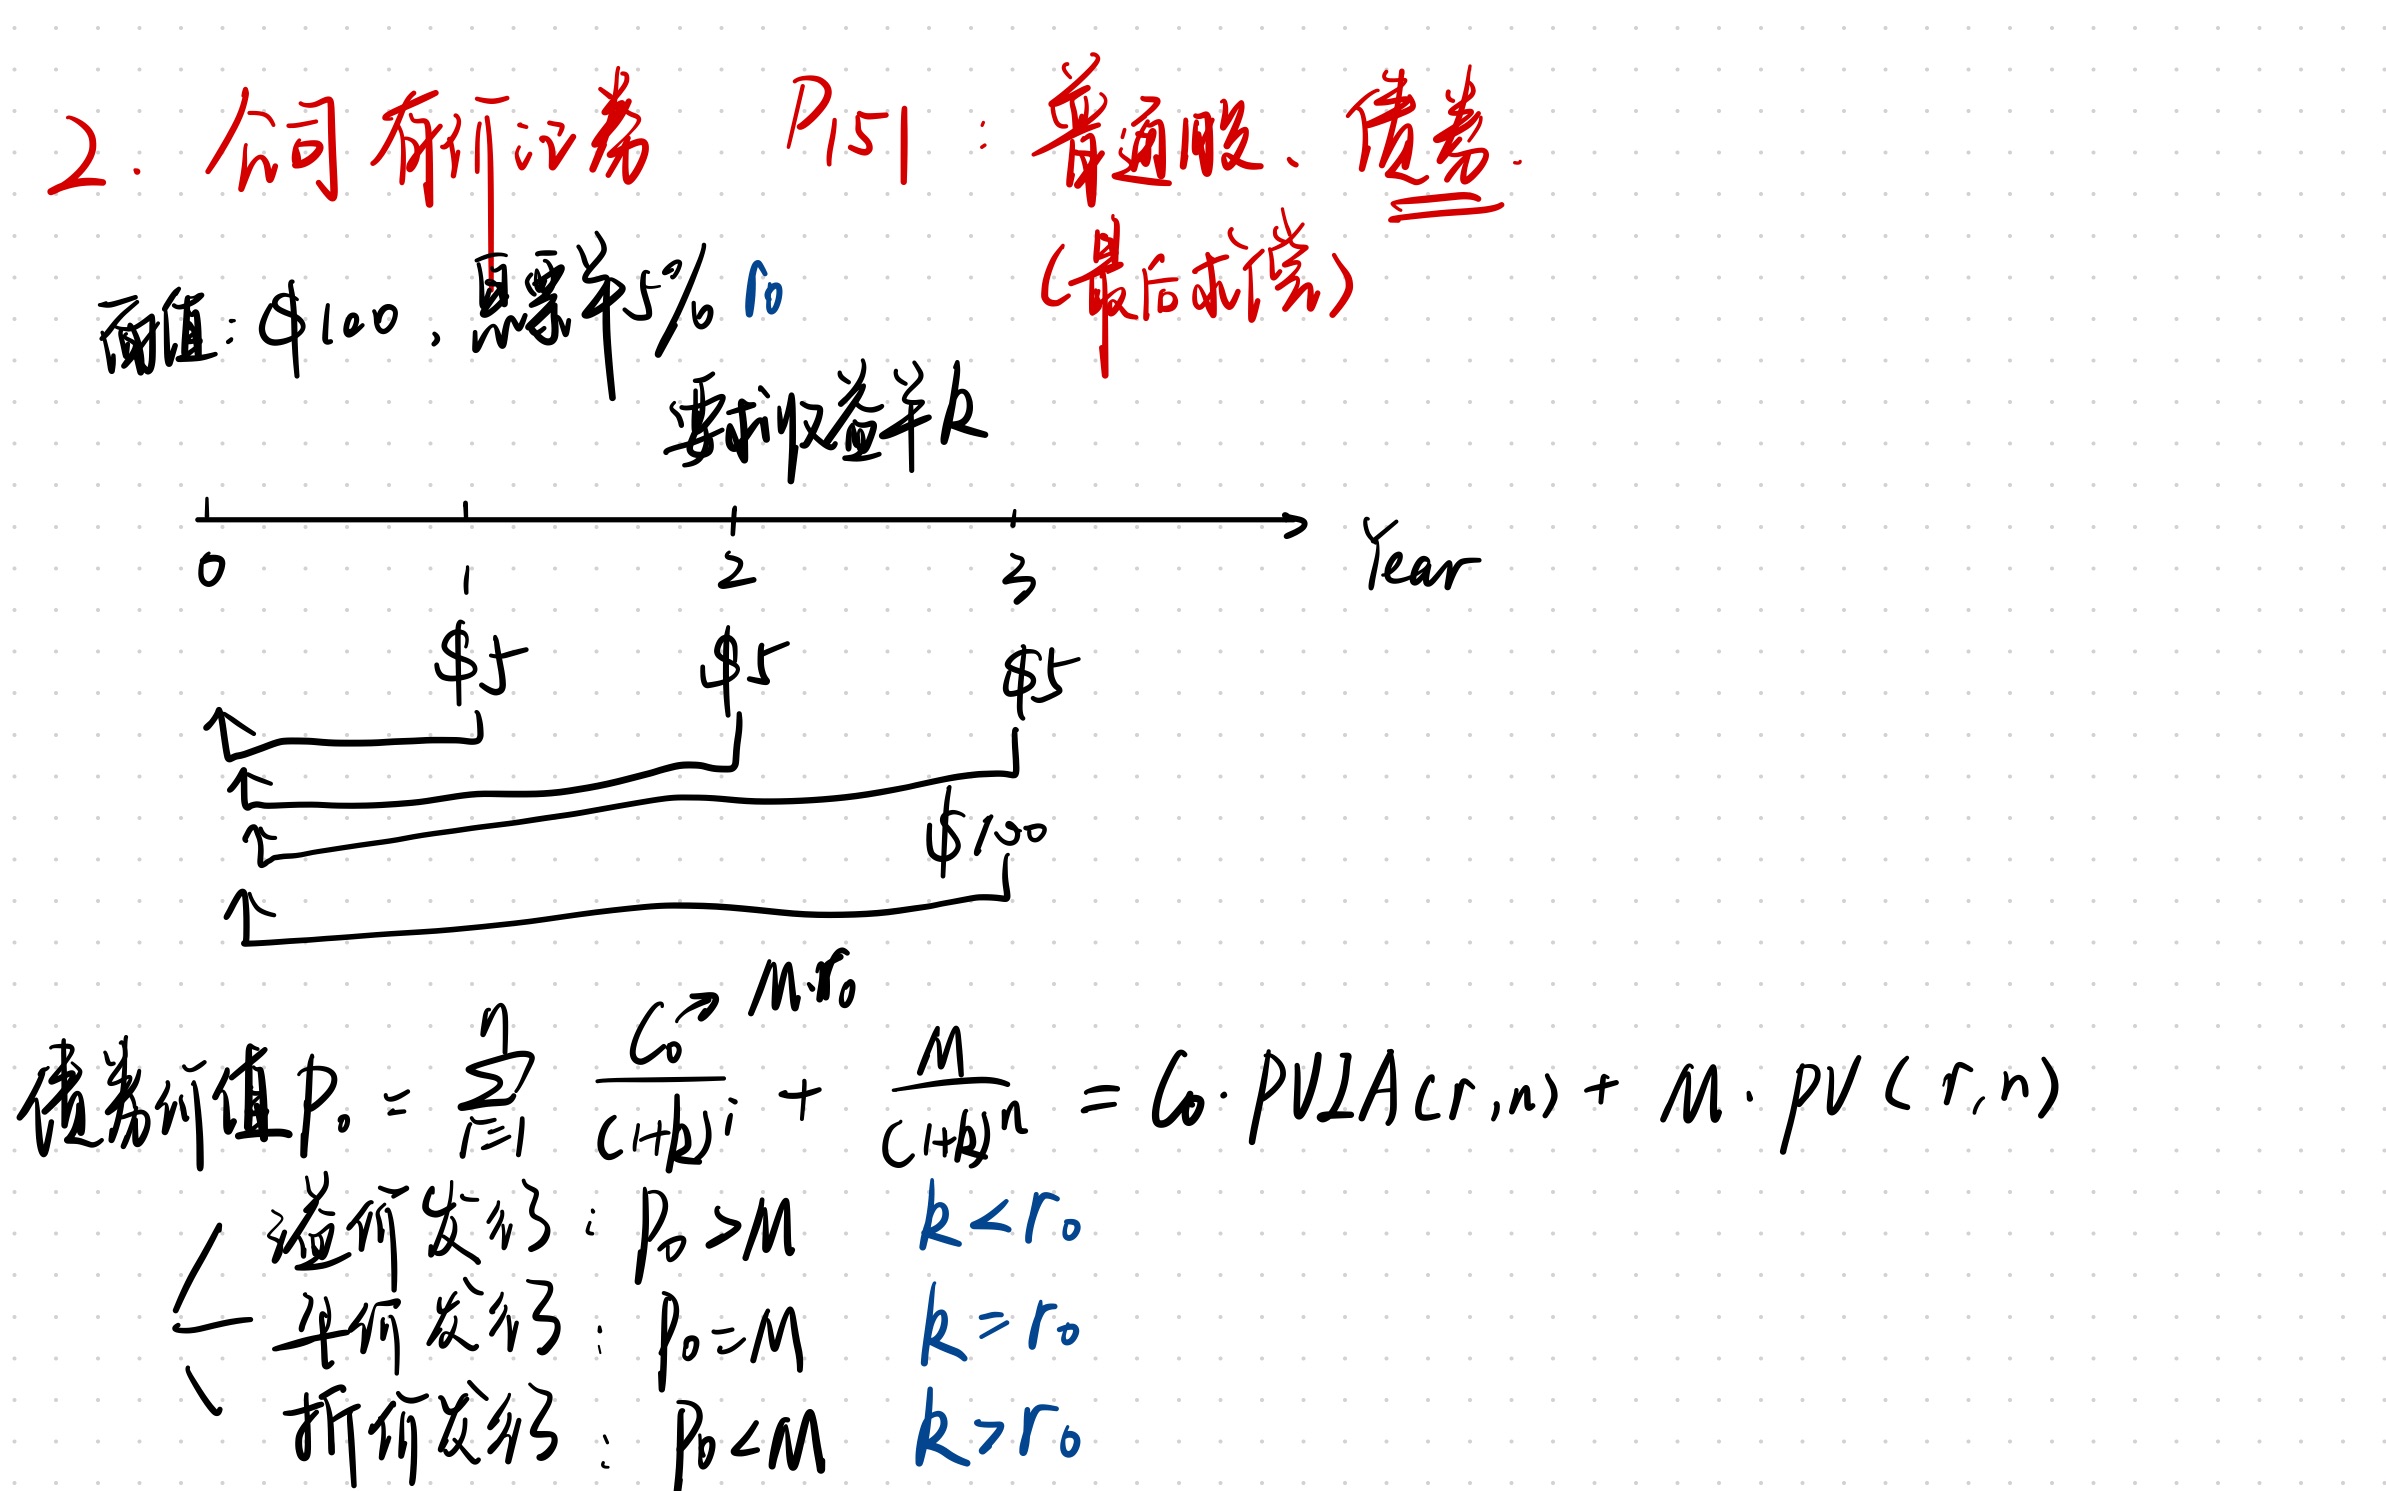 2. 公司有价证券 P151：普通股、债券.
(最后求偿)
面值：$100, 票率5% r0
要求收益率k
0 1 2 3 Year
$5 $5 $5
$100
M·r0
债券价值P0 = n Σ i=1 C0→/(1+k)^i + M/(1+k)^n = C0·PVIA(r,n) + M·PV(r,n)
溢价发行：P0>M k<r0
平价发行：P0=M k=r0
折价发行：P0<M k>r0